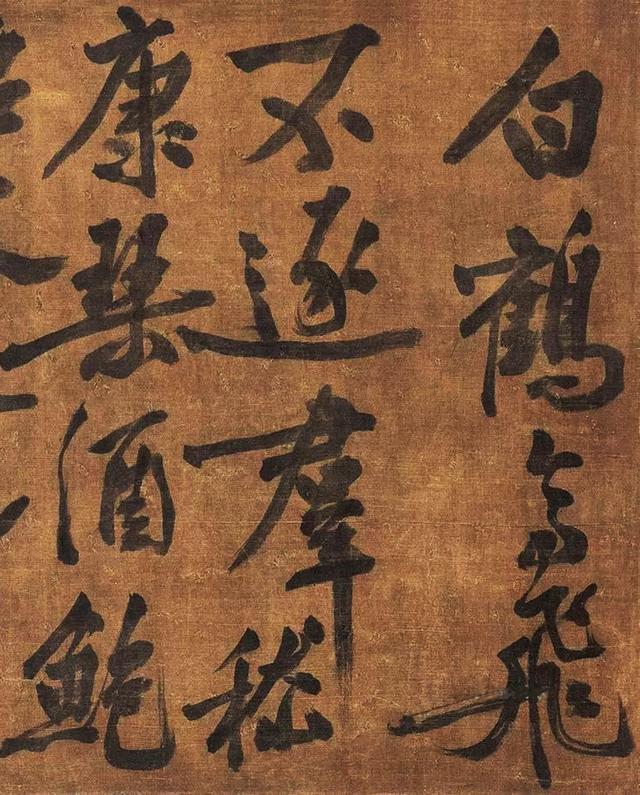 白鶴高飛
不逐羣嵇
康琴酒鮑